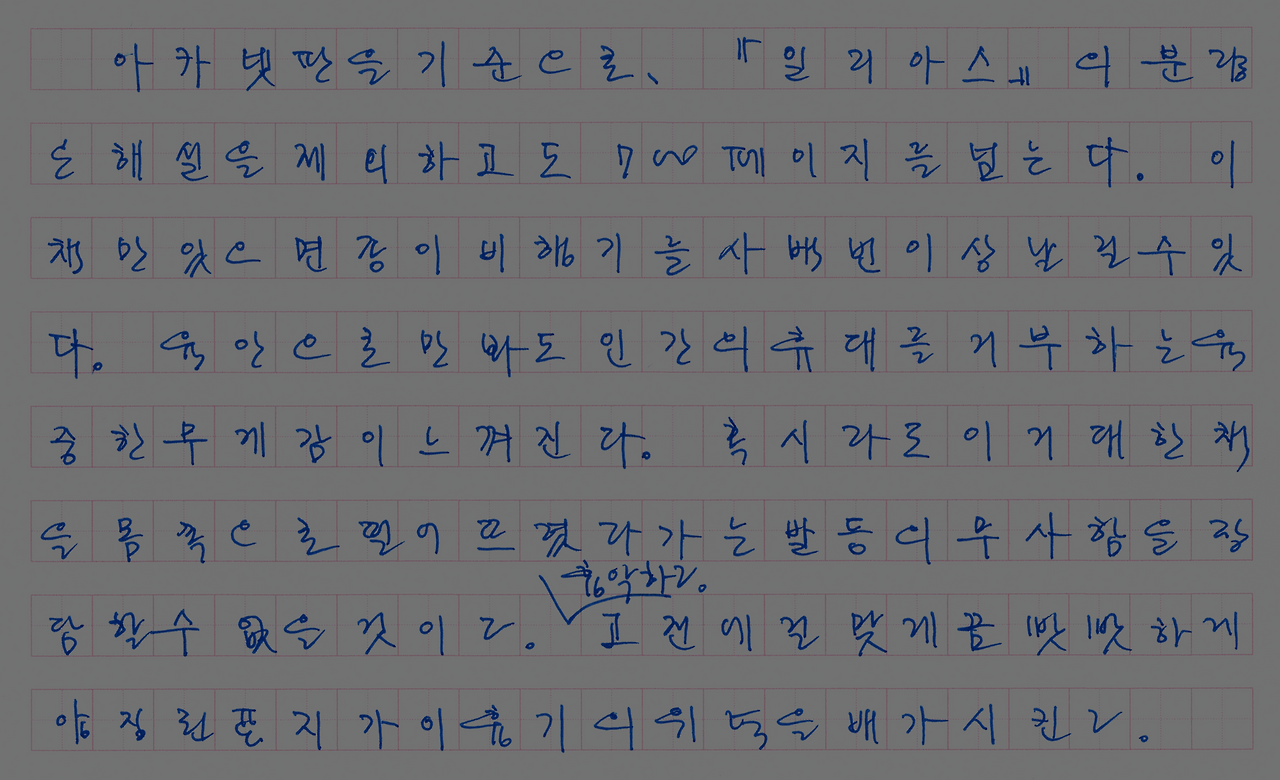 아카넷판을 기준으로, 『일리아스』의 분량
은 해설을 제외하고도 700페이지를 넘는다. 이
책만 있으면 종이비행기를 사백 번 이상 날릴 수 있
다. 육안으로만 봐도 인간의 휴대를 거부하는 육
중한 무게감이 느껴진다. 혹시라도 이 거대한 책
을 몸 쪽으로 떨어뜨렸다가는 발등의 무사함을 장
흉악하다.
담할 수 없을 것이다. 고전에 걸맞게 끔 빳빳하게
양장된 표지가 이 흉기의 위력을 배가시킨다.